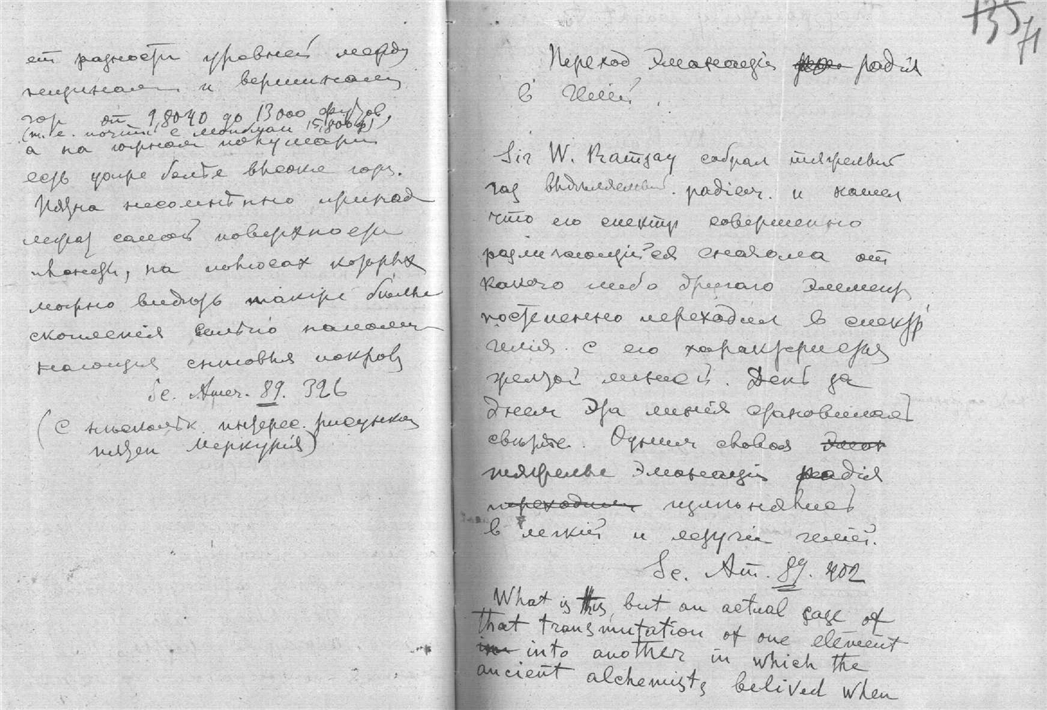 от разности уровней между
низинами и вершинами
гор от 9,8040 до 13000 футов,
(т. е. почти с Монблан 15,800 ф)
а на юрном полушарии
есть уоре более высокие горы.
Пятна несомненно принад
лежат самой поверхности
планеты, на полюсах которых
можно видеть такіе былые
скопленія
снеговыя покровы
Sc. Amer. 89. 326
(с несколк. интерес. рисунками
пятен Меркурія)
135
71
Переход Эманацій радія
в Гелій.
Sir W. Ramsay собрал тяжелый
газ выделяемый радіем и нашел
что его спектр совершенно
различающійся сначала от
какого либо другаго элемента,
постепенно переходил в спектр
гелія с его характерной
желтой линіей. День за
днем эта линія становилась
светлее. Одним словом
тяжелые эманаціи радія
переходили
в легкій и летучій гелій.
Sc. Am. 89. 402
What is this, but an actual case of
that transmutation of one element
into another in which the
ancient alchemists belived when